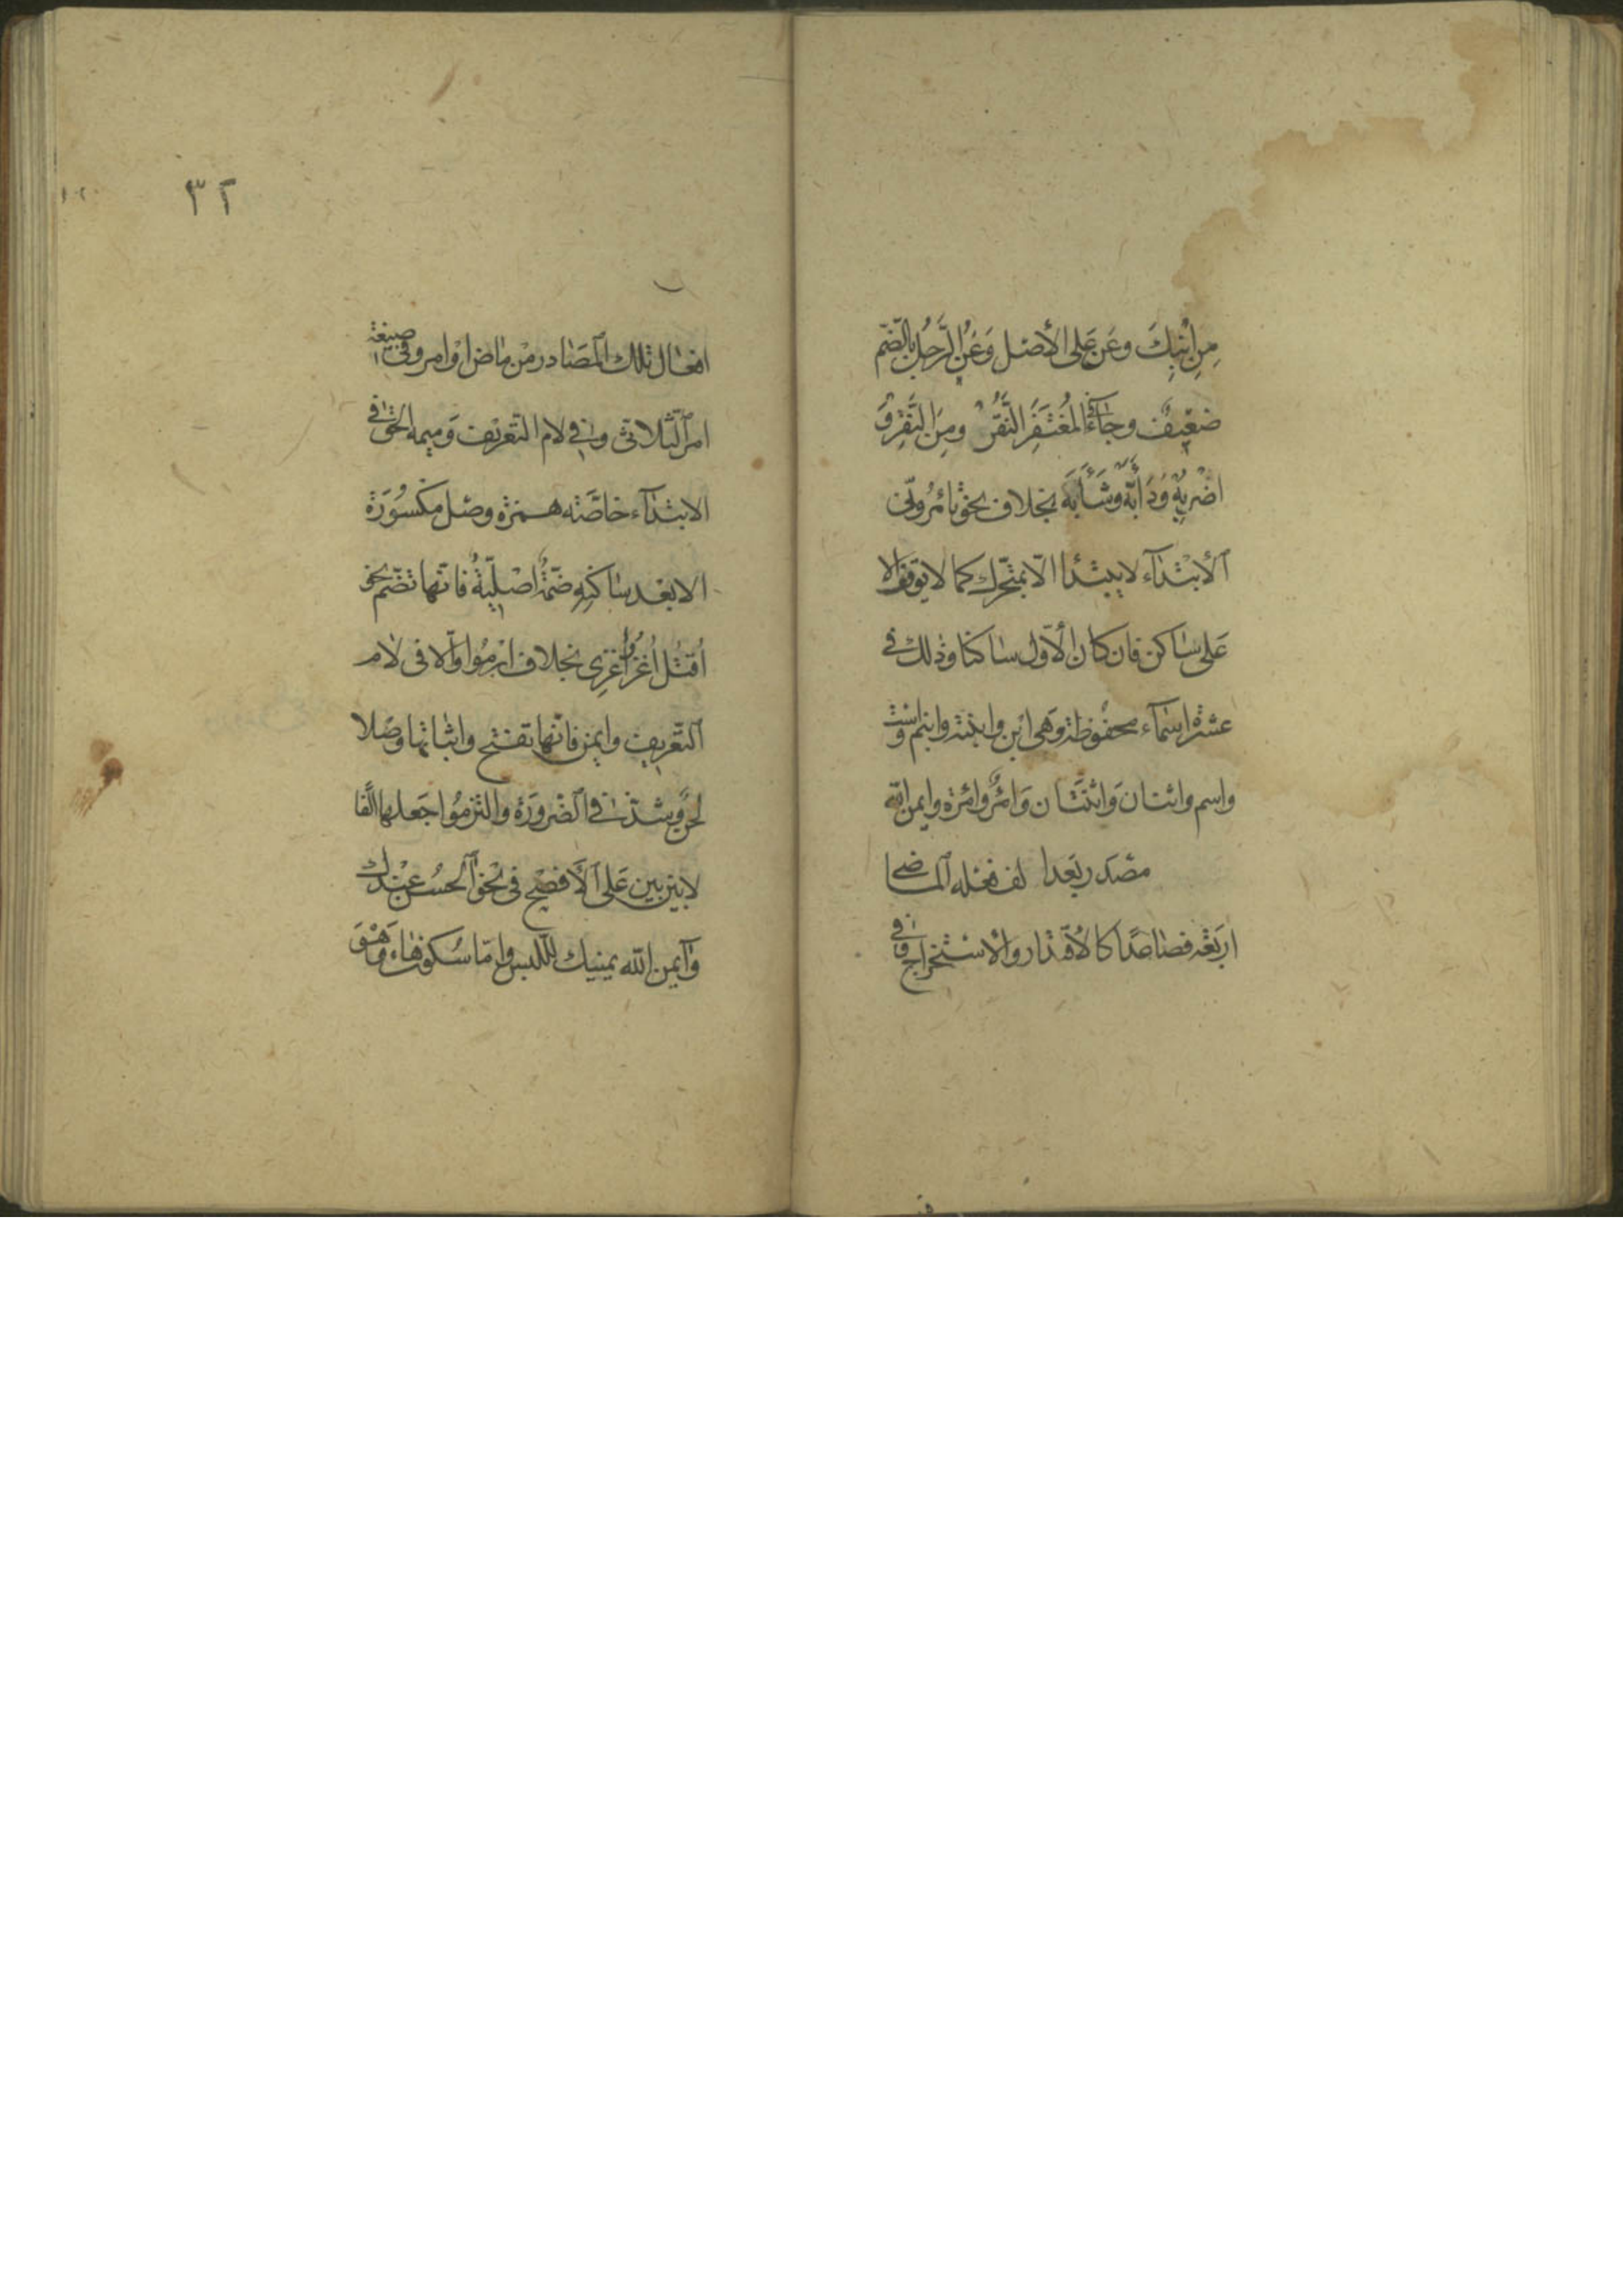 مِنِ ابْنِكَ وعَن عَلى الأصل وعَنُ الرَّجُل بالضّم
ضعيفٌ وجَاءَ فى المُغتَفَر النَّقُرْ ومِنَ النَّقِرْ وَ
اضْرِبُهْ وَدَأَبَّة وشَأَبَّة بخلاف نحو تأمُرُونّى
الأبتدآء لا يبتدأ الّا بمتحّرك كما لا يوقف الا
عَلى سَاكن فان كان الأوّل ساكنا وذلك فى
عشرة اسمآء محفوظة وهى ابن وابنة وابنم واست
واسم واثنان وَاثنتَان وَامرٌؤ وامرَة وايمن الله
مصدر بَعد الف فعله الماضى
اربَعَة فصاعدًا كالاقتدار والاستخراج وفى
افعال تلك المصَادر من ماض او امر وفى صيغة
امر الثّلاثى وفى لام التعريف وَميمه الحق فى
الابتدآء خاصَّة همزة وصل مكسُورَة
الا بعد ساكنِهِ ضمّةٌ اصْليّةٌ فانّها تضّم نحو
اُقتُل اُغزُ اُغزِى بخلاف ارمُوا والّا فى لام
التّعريف وايمن فانّها تفتح واثباتها وصَلا
لحنٌ وشذّ فى الضّرورَة والتزمُوا جَعلها الفًا
لا بين بين عَلى الأفصَح فى نحو آلحسُن عِندك
وآيمن الله يمينك للّبس وامّا سكون هاء وَهْوَ
٣٢